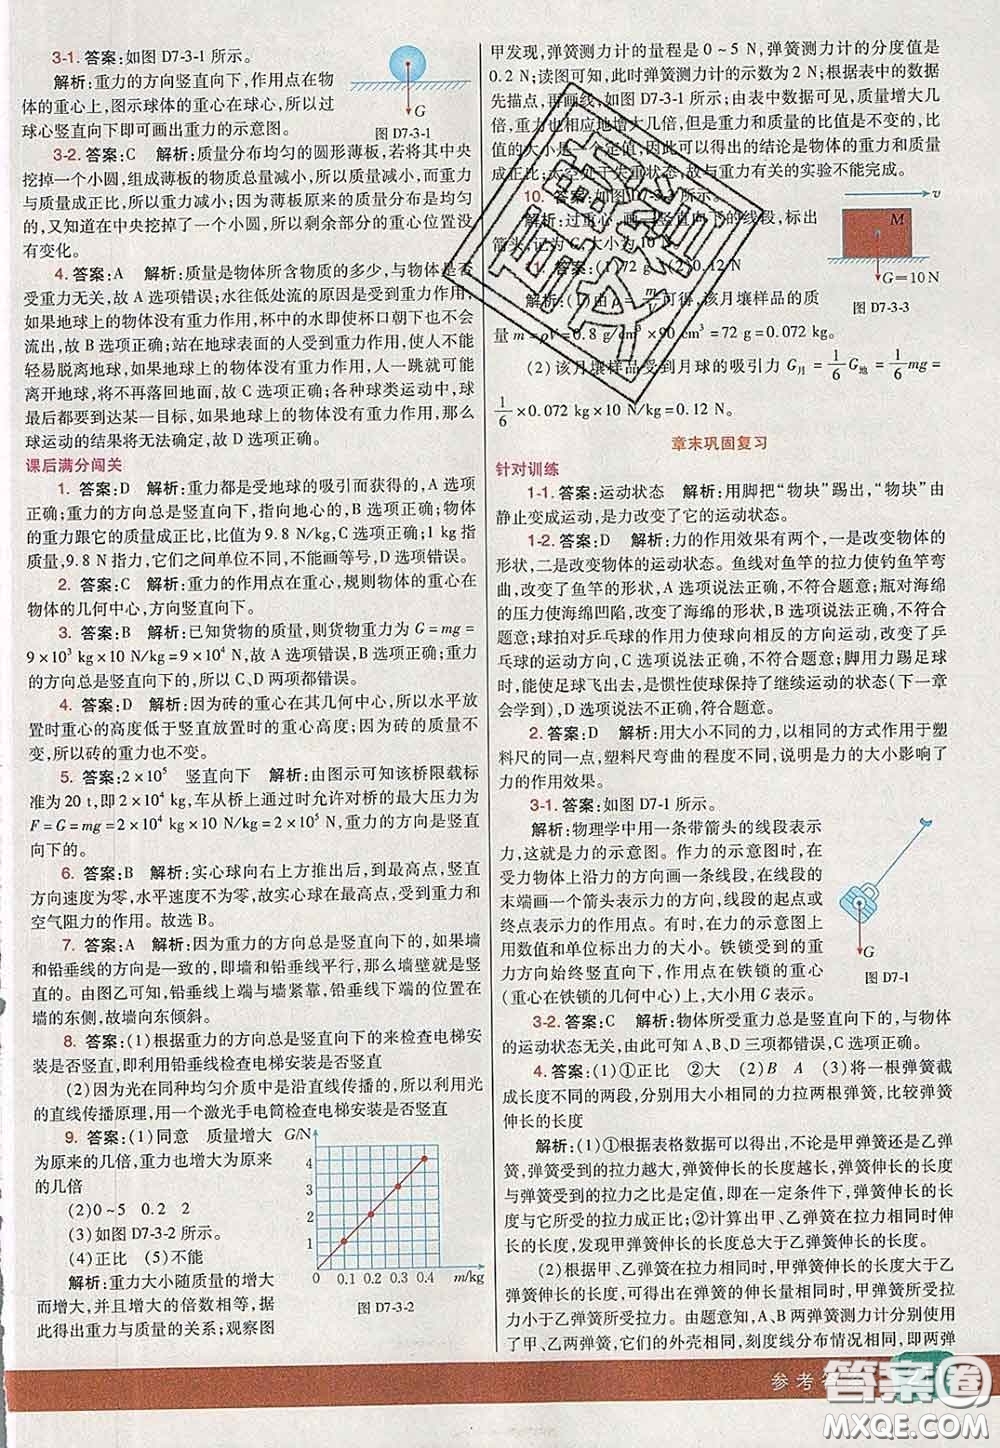 3-1. 答案:如图 D7-3-1 所示。
解析:重力的方向竖直向下,作用点在物
体的重心上,图示球体的重心在球心,所以过
球心竖直向下即可画出重力的示意图。
G
图 D7-3-1
3-2. 答案:C 解析:质量分布均匀的圆形薄板,若将其中央
挖掉一个小圆,组成薄板的物质总量减小,所以质量减小,而重力
与质量成正比,所以重力减小;因为薄板原来的质量分布是均匀
的,又知道在中央挖掉了一个小圆,所以剩余部分的重心位置没
有变化。
4. 答案:A 解析:质量是物体所含物质的多少,与物体是否
受重力无关,故 A 选项错误;水往低处流的原因是受到重力作用,
如果地球上的物体没有重力作用,杯中的水即使杯口朝下也不会
流出,故 B 选项正确;站在地球表面的人受到重力作用,使人不能
轻易脱离地球,如果地球上的物体没有重力作用,人一跳就可能
离开地球,将不再落回地面,故 C 选项正确;各种球类运动中,球
最后都要到达某一目标,如果地球上的物体没有重力作用,那么
球运动的结果将无法确定,故 D 选项正确。
课后满分闯关
1. 答案:D 解析:重力都是受地球的吸引而获得的,A 选项
正确;重力的方向总是竖直向下,指向地心的,B 选项正确;物体的
重力跟它的质量成正比,比值为 9.8 N/kg,C 选项正确;1 kg 指质
量,9.8 N指力,它们之间单位不同,不能画等号,D 选项错误。
2. 答案:C 解析:重力的作用点在重心,规则物体的重心在
物体的几何中心,方向竖直向下。
3. 答案:B 解析:已知货物的质量,则货物重力为 G=mg=
9×10³ kg×10 N/kg=9×10⁴ N,故 A 选项错误,B 选项正确;重力
的方向总是竖直向下的,所以 C、D 两项都错误。
4. 答案:D 解析:因为砖的重心在其几何中心,所以水平放
置时重心的高度低于竖直放置时的重心高度;因为砖的质量不
变,所以砖的重力也不变。
5. 答案:2×10⁵ 竖直向下 解析:由图示可知该桥限载标
准为 20 t,即 2×10⁴ kg,车从桥上通过时允许对桥的最大压力为
F=G=mg=2×10⁴ kg×10 N/kg=2×10⁵ N,重力的方向是竖直
向下的。
6. 答案:B 解析:实心球向右上方推出后,到最高点,竖直
方向速度为零,水平速度不为零,故实心球在最高点,受到重力和
空气阻力的作用。故选 B。
7. 答案:A 解析:因为重力的方向总是竖直向下的,如果墙
和铅垂线的方向是一致的,即墙与铅垂线平行,那么墙壁就是竖
直的。由图乙可知,铅垂线上端与墙紧靠,铅垂线下端的位置在
墙的东侧,故墙向东倾斜。
8. 答案:(1)根据重力的方向总是竖直向下的来检查电梯安
装是否竖直,即利用铅垂线检查电梯安装是否竖直
(2)因为光在同种均匀介质中是沿直线传播的,所以利用光
的直线传播原理,用一个激光手电筒检查电梯安装是否竖直
9. 答案:(1)同意 质量增大
为原来的几倍,重力也增大为原来
的几倍
(2)0~5 0.2 2
(3)如图 D7-3-2 所示。
(4)正比 (5)不能
解析:重力大小随质量的增大
而增大,并且增大的倍数相等,据
此得出重力与质量的关系;观察图
G/N
4
3
2
1
0 0.1 0.2 0.3 0.4 m/kg
图 D7-3-2
甲发现,弹簧测力计的量程是 0~5 N,弹簧测力计的分度值是
0.2 N;读图可知,此时弹簧测力计的示数为 2 N;根据表中的数据
先描点,再画线,如图 D7-3-1 所示;由表中数据可见,质量增大几
倍,重力也相应地增大几倍,但是重力和质量的比值是不变的,比
值的大小是一个定值,因此可以得出的结论是物体的重力和质量
成正比;太空处于失重状态,故与重力有关的实验不能完成。
10. 答案:如图 D7-3-3 所示。
解析:过重心,画一竖直向下的线段,标出
箭头,记为 G,大小为 10 N。
v
M
G=10 N
图 D7-3-3
11. 答案:(1)72 g (2)0.12 N
解析:(1)由 ρ=m/V可得,该月壤样品的质
量 m=ρV=0.8 g/cm³×90 cm³=72 g=0.072 kg。
(2)该月壤样品受到月球的吸引力 G月=1/6G地=1/6mg=
1/6×0.072 kg×10 N/kg=0.12 N。
章末巩固复习
针对训练
1-1. 答案:运动状态 解析:用脚把“物块”踢出,“物块”由
静止变成运动,是力改变了它的运动状态。
1-2. 答案:D 解析:力的作用效果有两个,一是改变物体的
形状,二是改变物体的运动状态。鱼线对鱼竿的拉力使钓鱼竿弯
曲,改变了鱼竿的形状,A 选项说法正确,不符合题意;瓶对海绵
的压力使海绵凹陷,改变了海绵的形状,B 选项说法正确,不符合
题意;球拍对乒乓球的作用力使球向相反的方向运动,改变了乒
乓球的运动方向,C 选项说法正确,不符合题意;脚用力踢足球
时,能使足球飞出去,是惯性使球保持了继续运动的状态(下一章
会学到),D 选项说法不正确,符合题意。
2. 答案:D 解析:用大小不同的力,以相同的方式作用于塑
料尺的同一点,塑料尺弯曲的程度不同,说明是力的大小影响了
力的作用效果。
3-1. 答案:如图 D7-1 所示。
解析:物理学中用一条带箭头的线段表示
力,就是力的示意图。作力的示意图时,在
受力物体上沿力的方向画一条线段,在线段的
末端画一个箭头表示力的方向,线段的起点或
终点表示力的作用点。有时,在力的示意图上
用数值和单位标出力的大小。铁锁受到的重
力方向始终竖直向下,作用点在铁锁的重心
(重心在铁锁的几何中心)上,大小用 G 表示。
G
图 D7-1
3-2. 答案:C 解析:物体所受重力总是竖直向下的,与物体
的运动状态无关,由此可知 A、B、D 三项都错误,C 选项正确。
4. 答案:(1)①正比 ②大 (2)B A (3)将一根弹簧截
成长度不同的两段,分别用大小相同的力拉两根弹簧,比较弹簧
伸长的长度
解析:(1)①根据表格数据可以得出,不论是甲弹簧还是乙弹
簧,弹簧受到的拉力越大,弹簧伸长的长度越长,弹簧伸长的长度
与弹簧受到的拉力之比是定值,即在一定条件下,弹簧伸长的长
度与它所受的拉力成正比;②计算出甲、乙弹簧在拉力相同时伸
长的长度,发现甲弹簧伸长的长度总大于乙弹簧伸长的长度。
(2)根据甲、乙弹簧伸长的长度与受到拉力的关系可知,甲弹
簧伸长的长度大于乙弹簧,在弹簧的伸长量相同时,甲弹簧所受拉
力小于乙弹簧所受拉力。由题意知,A、B 两弹簧测力计分别使用
了甲、乙两弹簧,它们的外壳相同,刻度线分布情况相同,即两弹
参考答
答案圈
MXQE.COM